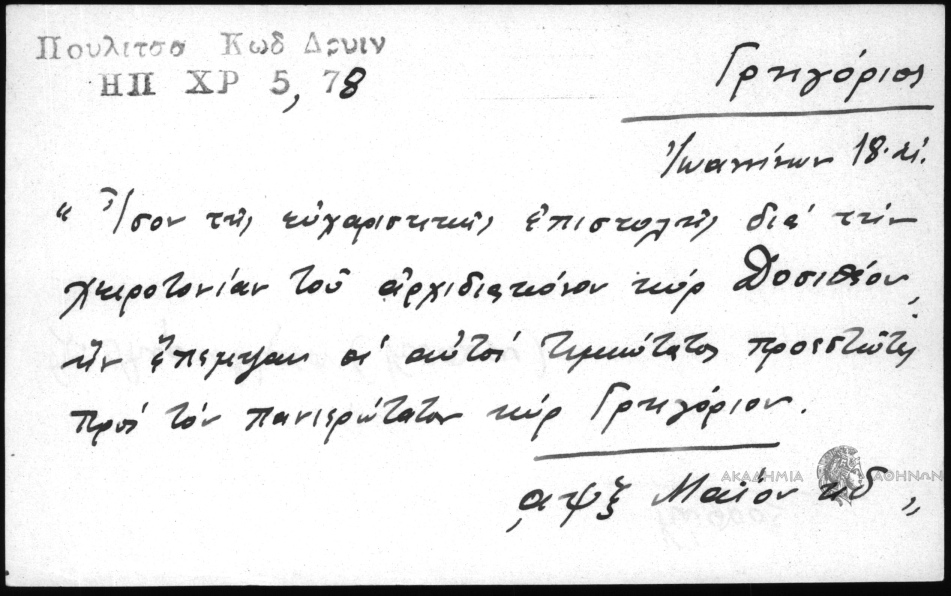 Πουλιτσα Κωδ Δρυιν
ΗΠ ΧΡ 5, 78
Γρηγόριος
Ἰωαννίνων 18. αἰ.
“ Ἴσον τῆς εὐχαριστικῆς ἐπιστολῆς διά τήν
χειροτονίαν τοῦ ἀρχιδιακόνου κύρ Δοσιθέου,
ἥν ἔπεμψαν οἱ αὐτοί τιμιώτατοι προεστῶτες
πρός τόν πανιερώτατον κύρ Γρηγόριον.
͵αψξ Μαΐου κδ „
ΑΚΑΔΗΜΙΑ ΑΘΗΝΩΝ